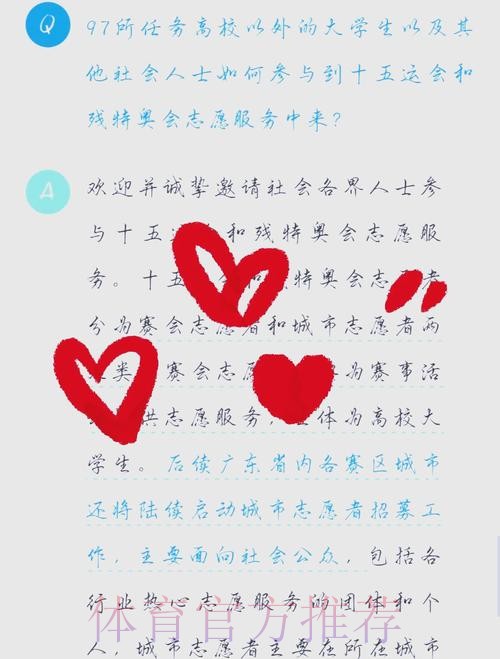 Q
97所任务高校以外的大学生以及其
他社会人士如何参与到十五运会和
残特奥会志愿服务中来？
A
欢迎并诚挚邀请社会各界人士参
与十五运 和残特奥会志愿服
务。十五 特奥会志 者
分为赛会志愿者和城市志愿者两
类 赛会志愿 为赛事活
供志愿服务， 体为高校大
学生。后续广东省内各赛区城市
还将陆续启动城市志愿者招募工
作，主要面向社会公众，包括各
行业热心志愿服务的团体和个
体育官方推荐
人，城市志愿者主要在所在城市